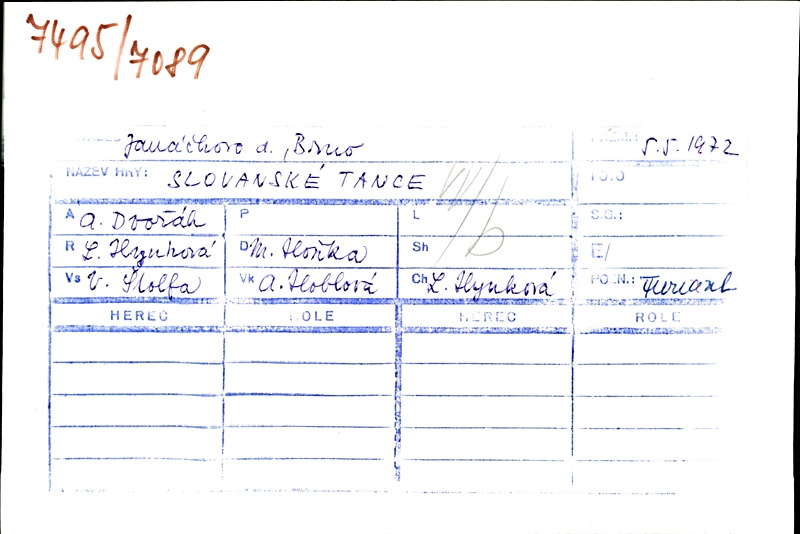 7495/7089
Janáčkovo d., Brno PREM.: 5.5.1972
NÁZEV HRY: SLOVANSKÉ TANCE FOTO
A A. Dvořák P L S.G.:
R L. Hynková D M. Hoňka Sh E/
Vs V. Štolfa Vk A. Hoblová Ch L. Hynková POZN.: Furiant
VII/b
HEREC ROLE HEREC ROLE